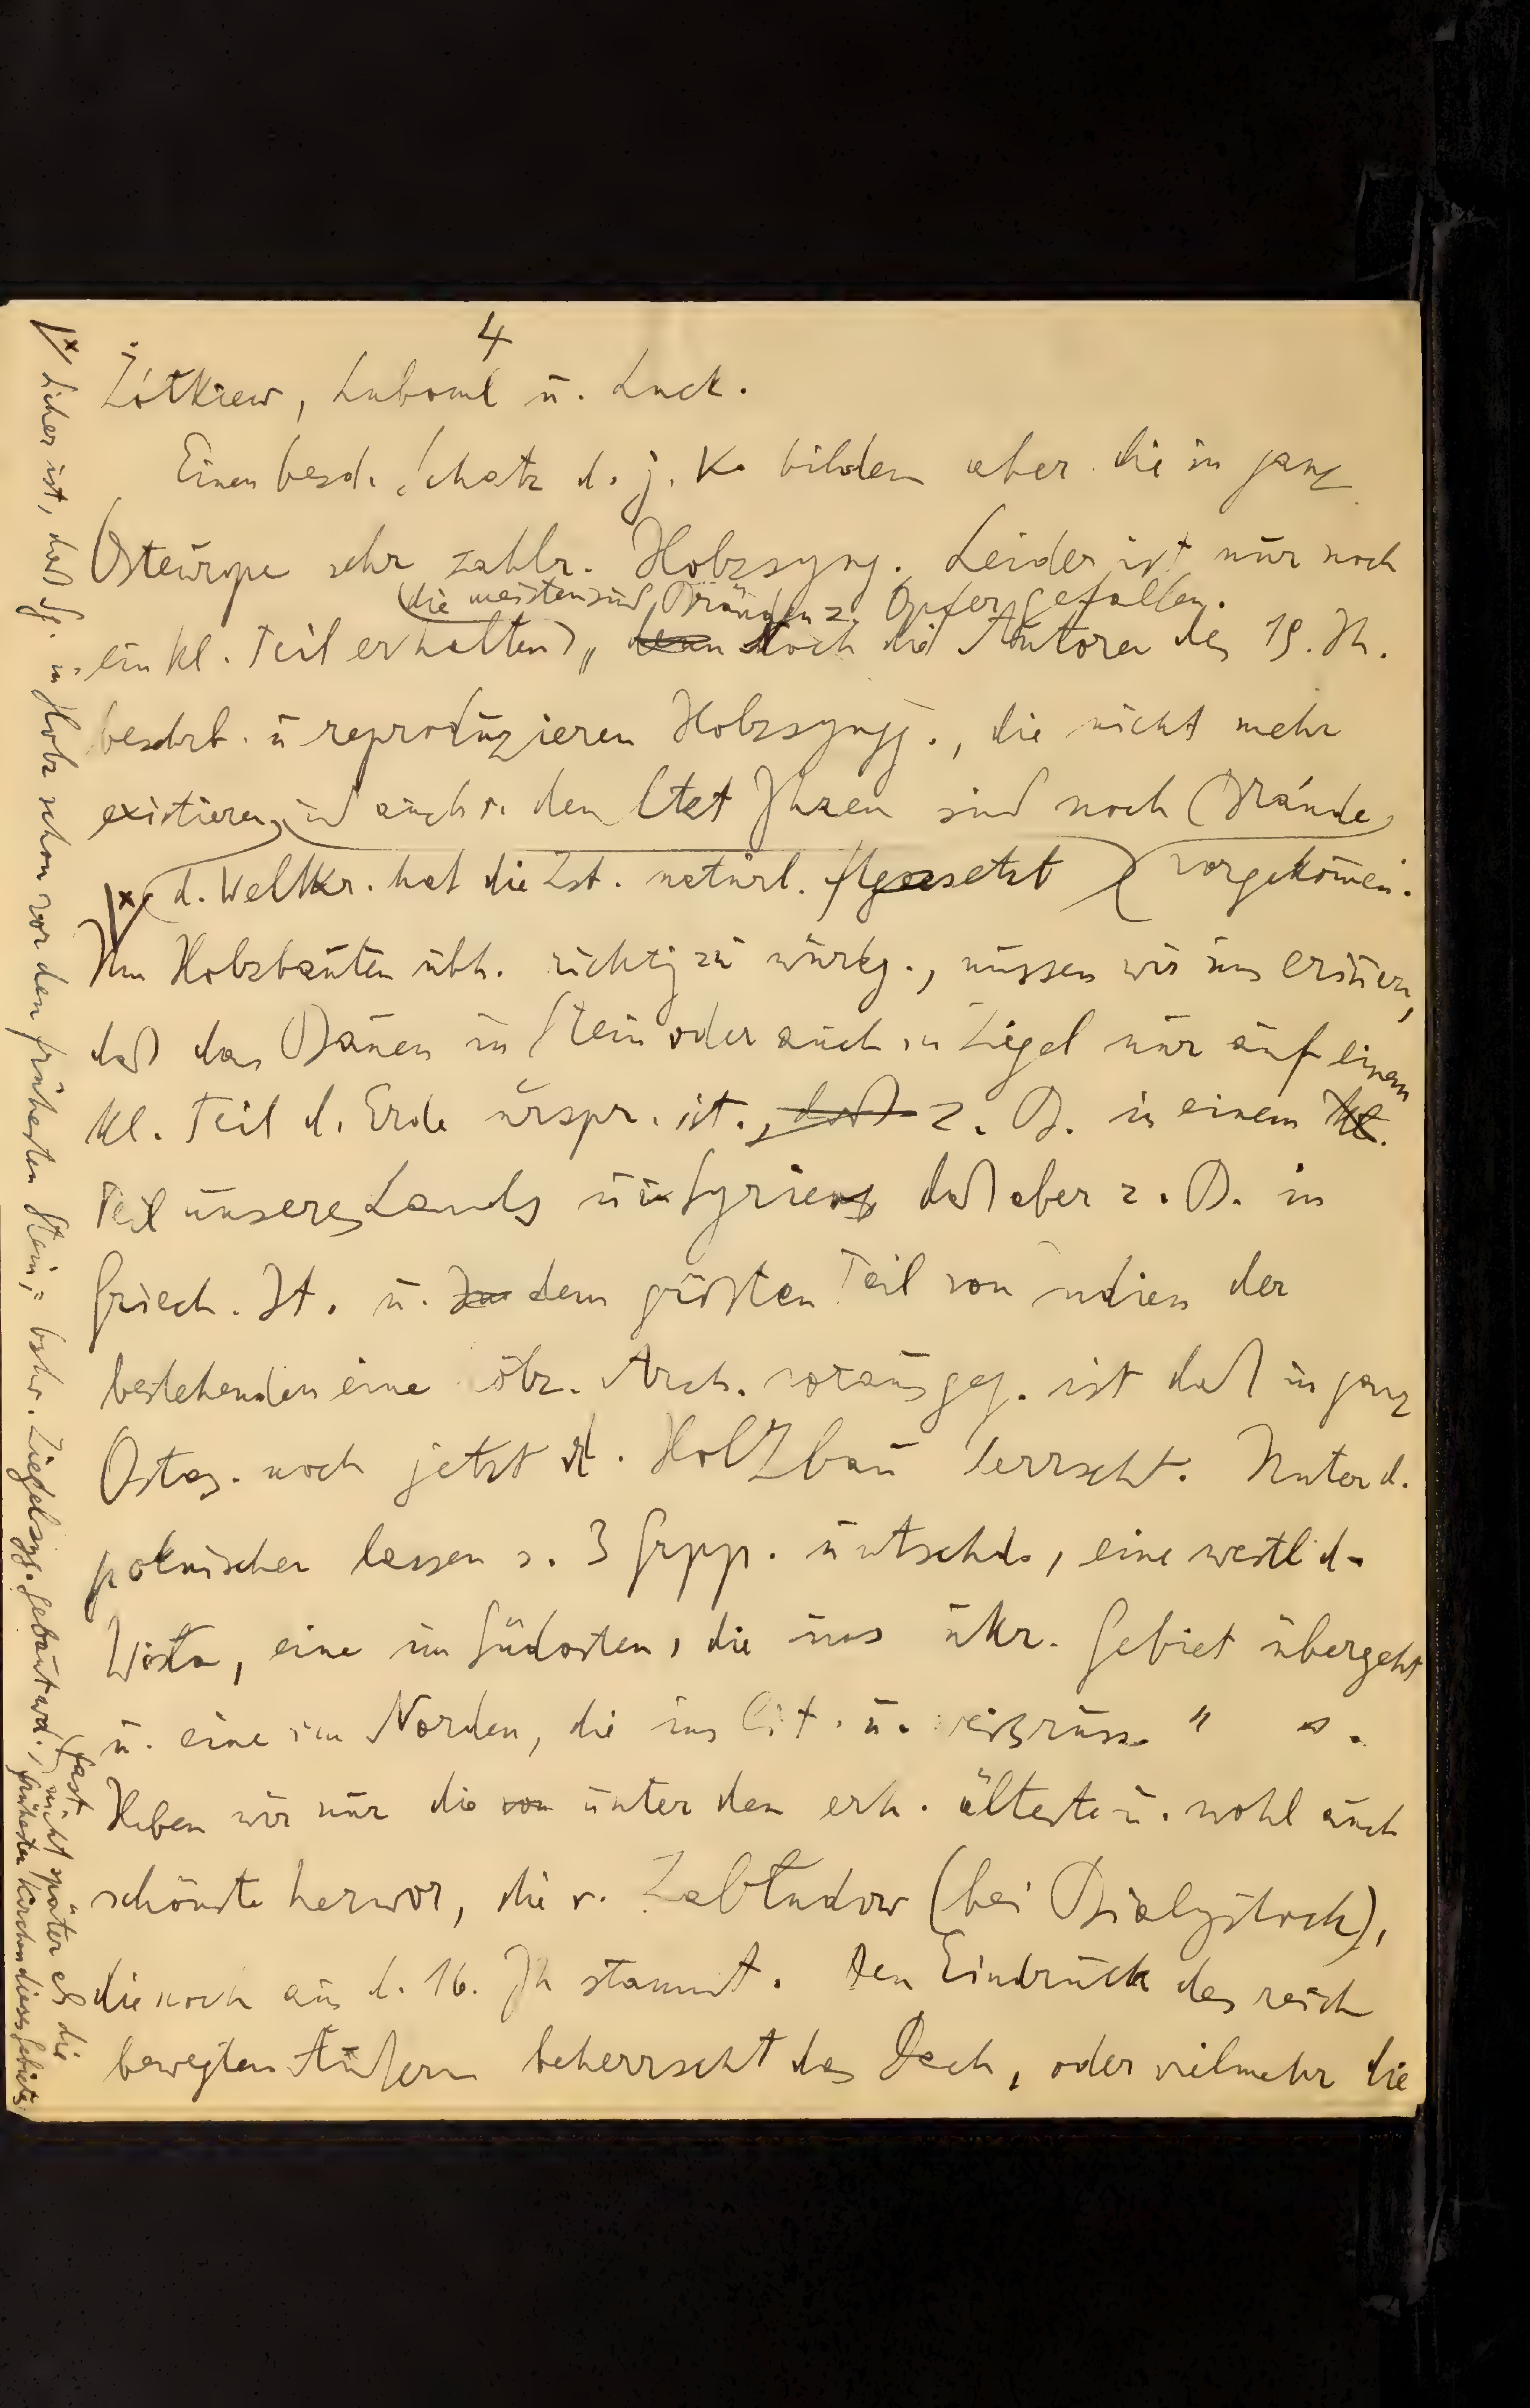 4
Żółkiew, Luboml u. Luck.
Einen besd. Schatz d. j. K. bilden aber die in ganz
Osteuropa sehr zahlr. Holzsyng. Leider ist nur noch
(die meisten sind Bränden z. Opfer gefallen.
ein kl. Teil erhalten), denn doch die Autoren des 19. Jh.
beschrb. u reproduzieren Holzsyngg., die nicht mehr
existieren, und auch v. den letzt Jhren sind noch Brände
|x) d. Weltkr. hat die Zst. natürl. fortgesetzt) vorgekommen.
Um Holzbauten übh. richtig zu würdg., müssen wir uns erinern,
daß das Bauen in Stein oder auch in Ziegel nur auf einem
kl. Teil d. Erde urspr. ist., daß z. B. in einem kl.
Teil unseres Lands u in Syriens daß aber z. B. in
Griech. It. u. dem größten Teil von Indien der
bestehenden eine hölz. Arch. vorausgeg. ist daß in ganz
Ostas. noch jetzt d. Holzbau herrscht. Unter d.
polnischen lassen s. 3 Grpp. untschd., eine westl d.
Wisła, eine im Südosten, die ins ukr. Gebiet übergeht
u. eine im Norden, die ins lit. u. weißruss. " ".
Heben wir nur die von unter den erh. älteste u. wohl auch
schönste hervor, die v. Zabłudow (bei Bialystock),
die noch aus d. 16. Jh stammt. Den Eindruck des reich
bewegten Äußern beherrscht das Dach, oder vielmehr die
|x) Sicher ist, daß Sy. in Holz schon vor den frühesten Stein, = bzhw. Ziegelsygg. gebaut wd., (fast) nicht später als die
frühesten Kirchen dieses Gebiets.